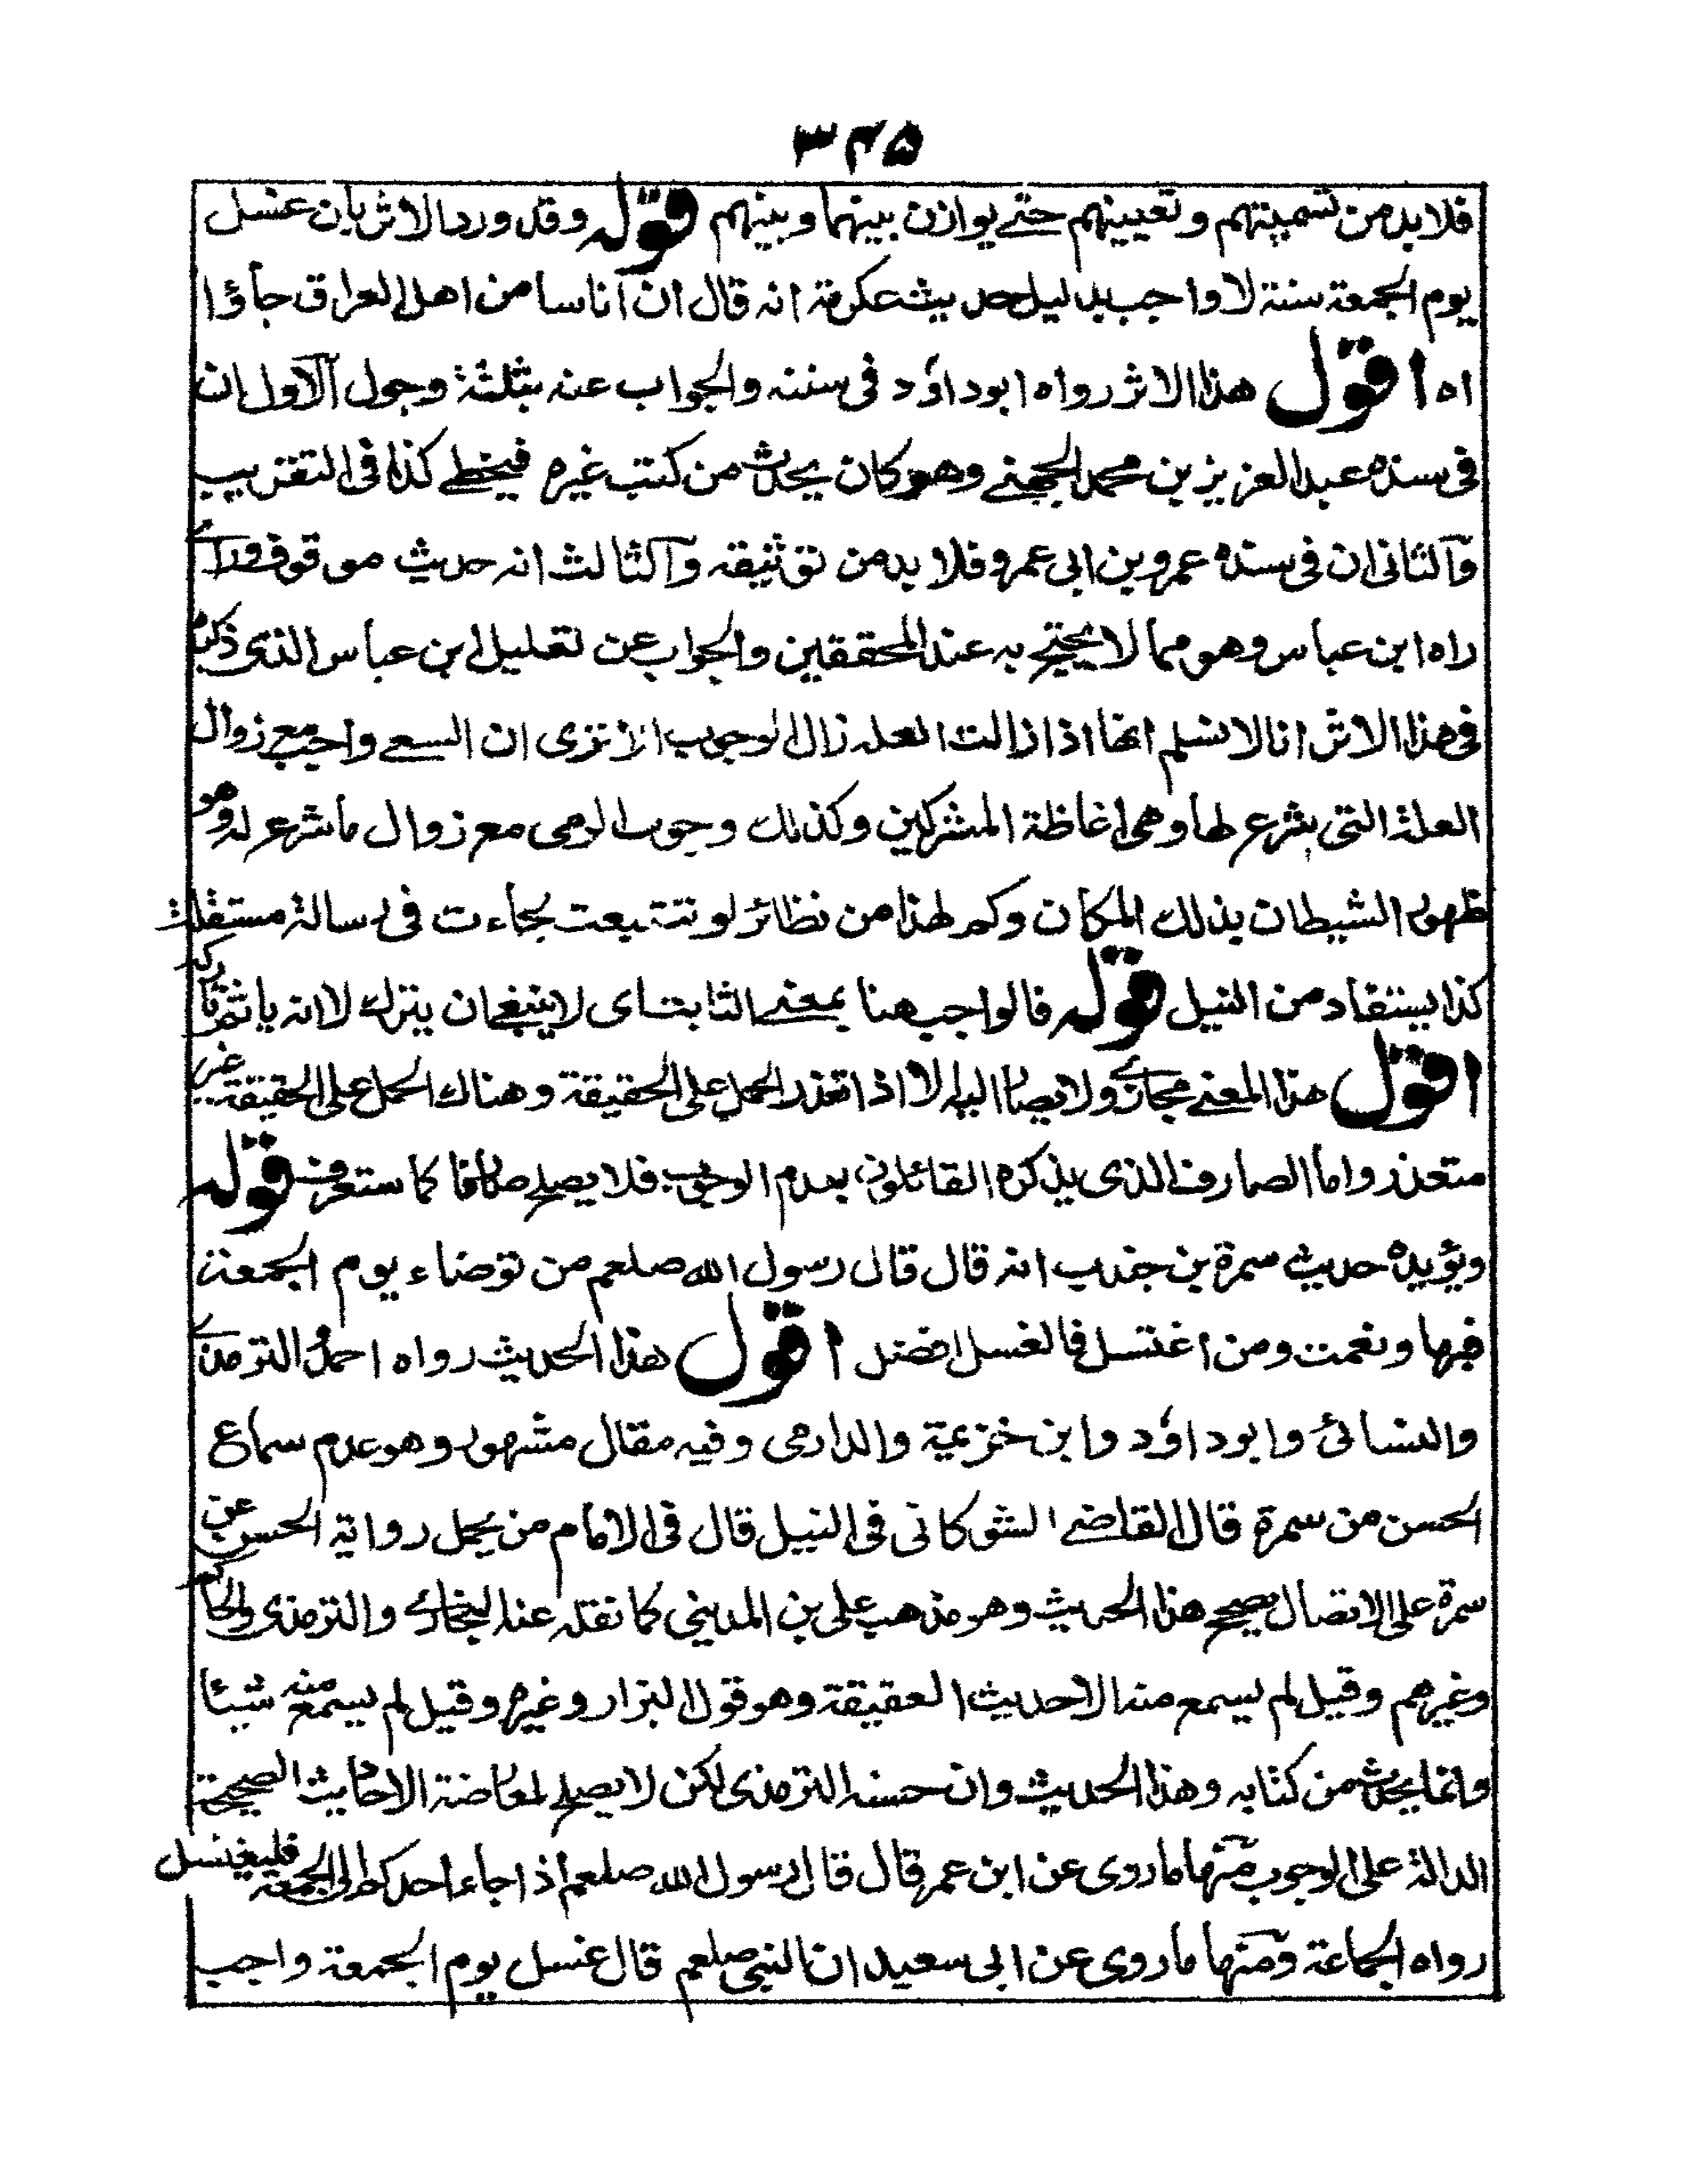 ۳۴۵
فلا بد من تسميتهم وتعيينهم حتے يوازن بينهما وبينهم قوله وقد ورد الاثر بان غسل
يوم الجمعة سنة لا واجب بدليل حديث عكرمة انه قال ان اناسا من اهل العراق جاؤا
اه اقول هذا الاثر رواه ابوداؤد فى سننه والجواب عنه بثلثة وجوه الاول ان
فى سنده عبد العزيز بن محمد الجهنے وهو كان يحدث من كتب غيره فيخطے كذا فى التقريب
والثانى ان فى سنده عمرو بن ابى عمرو فلا بد من توثيقه والثالث انه حديث موقوف وراے
راه ابن عباس وهو مما لا يحتج به عند المحققين والجواب عن تعليل ابن عباس الذى ذكره
فى هذا الاثر انا لا نسلم انها اذا زالت العلة زال الوجوب الا ترى ان السعے واجب مع زوال
العلة التى شرع لها وهى اغاظة المشركين وكذلك وجوب الرمى مع زوال ما شرع له وهو
ظهور الشيطان بذلك المكان وكم لهذا من نظائر لو تتبعت لجاءت فى رسالة مستقلة
كذا يستفاد من النيل قوله فالواجب هنا بمعنے الثابت اى لا ينبغے ان يترك لا انه ياثم تاركه
اقول هذا المعنے مجازے ولا يصار اليه الا اذا تعذر الحمل على الحقيقة وهناك الحمل على الحقيقة غير
متعذر واما الصارف الذى يذكره القائلون بعدم الوجوب فلا يصلح صارفا كما ستعرف قوله
ويؤيده حديث سمرة بن جندب انه قال قال رسول الله صلعم من توضاء يوم الجمعة
فبها ونعمت ومن اغتسل فالغسل افضل اقول هذا الحديث رواه احمد والترمذے
والنسائى وابوداؤد وابن خزيمة والدارمى وفيه مقال مشهور وهو عدم سماع
الحسن من سمرة قال القاضے الشوكانى فى النيل قال فى الامام من يحمل رواية الحسن عن
سمرة على الاتصال يصحح هذا الحديث وهو مذهب على بن المدينى كما نقله عنه البخارے والترمذى والحاكم
وغيرهم وقيل لم يسمع منه الا حديث العقيقة وهو قول البزار وغيره وقيل لم يسمع منه شيئا
وانما يحدث من كتابه وهذا الحديث وان حسنه الترمذى لكن لا يصلح لمعارضة الاحاديث الصحيحة
الدالة على الوجوب منها ما روى عن ابن عمر قال قال رسول الله صلعم اذا جاء احدكم الى الجمعة فليغتسل
رواه الجماعة ومنها ما روى عن ابى سعيد ان النبى صلعم قال غسل يوم الجمعة واجب